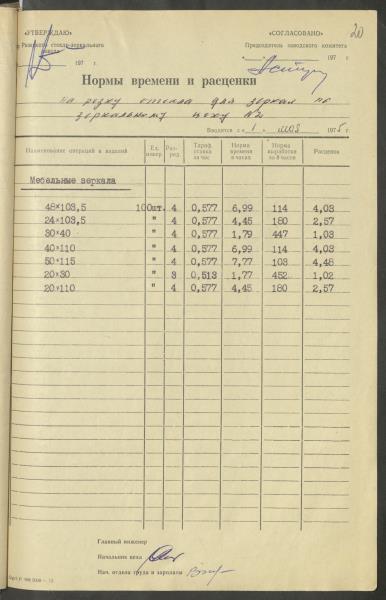 20
«УТВЕРЖДАЮ» «СОГЛАСОВАНО»
стекло-зеркального Председатель заводского комитета
197 г. 197 г.
Нормы времени и расценки
на резку стекла для зеркал по
зеркальному цеху №2
Вводится с « 1 » 1975 г.
Наименование операций и изделий Ед. измер. Раз-ряд. Тариф. ставка за час Норма времени в часах Норма выработки за 8 часов Расценок
Мебельные зеркала
48×103,5 100шт. 4 0,577 6,99 114 4,03
24×103,5 " 4 0,577 4,45 180 2,57
30×40 " 4 0,577 1,79 447 1,03
40×110 " 4 0,577 6,99 114 4,03
50×115 " 4 0,577 7,77 103 4,48
20×30 " 3 0,513 1,77 452 1,02
20×110 " 4 0,577 4,45 180 2,57
Главный инженер
Начальник цеха
Нач. отдела труда и зарплаты